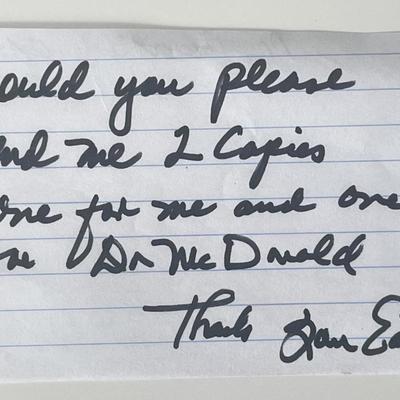 ould you please
nd me 2 Copies
one for me and one
or Dr McDonald
Thanks